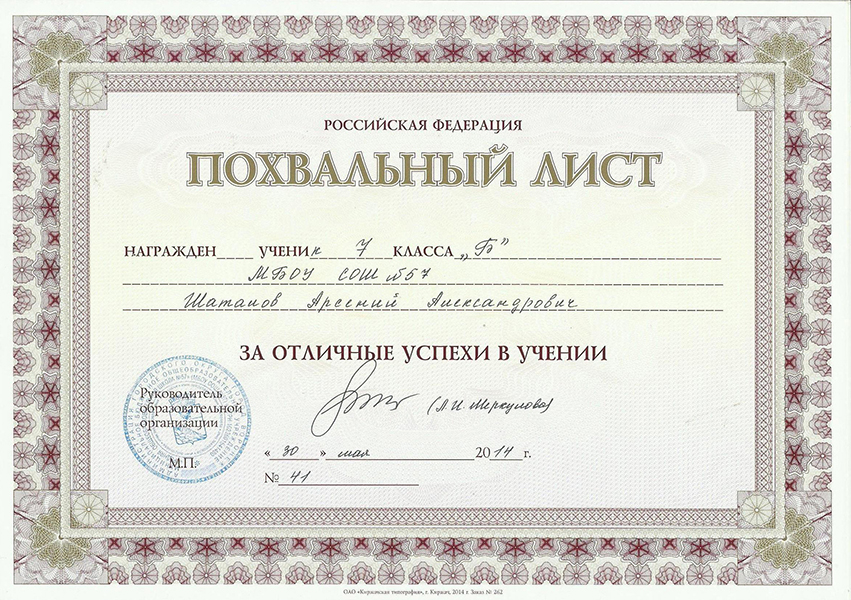 РОССИЙСКАЯ ФЕДЕРАЦИЯ
ПОХВАЛЬНЫЙ ЛИСТ
НАГРАЖДЕН____ УЧЕНИк 7 КЛАССА „Б”
МБОУ СОШ №57
Шаталов Арсений Александрович
ЗА ОТЛИЧНЫЕ УСПЕХИ В УЧЕНИИ
Руководитель
образовательной
организации
(Л.И. Меркулова)
« 30 » мая 2014 г.
М.П.
№ 41
ОАО «Киржачская типография», г. Киржач, 2014 г. Заказ № 262